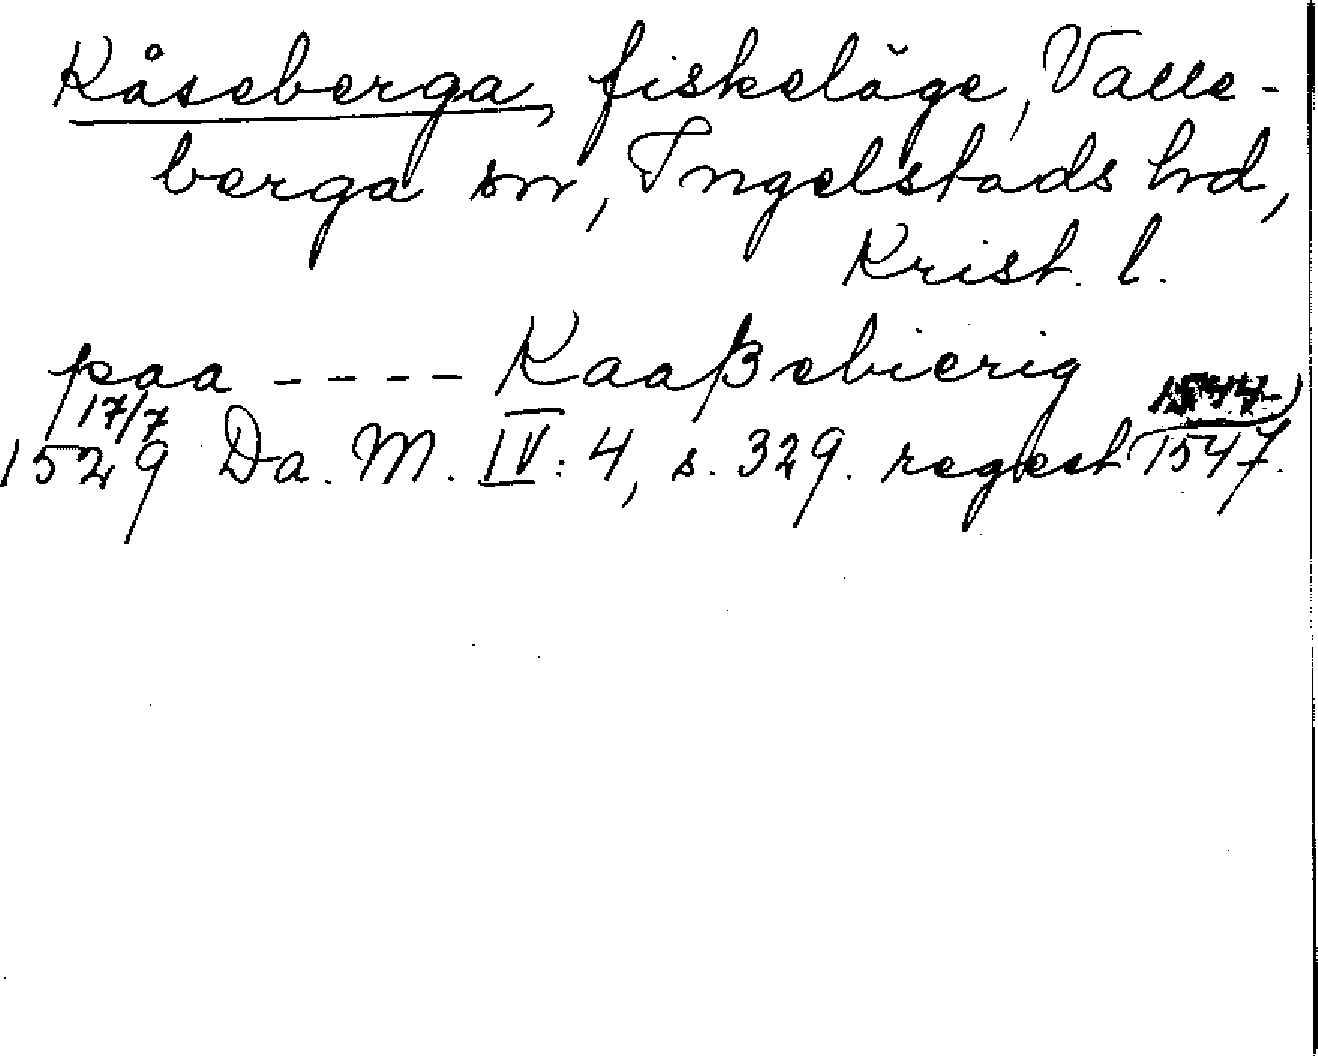 Kåseberga, fiskeläge, Valle-
berga sn, Ingelstads hrd,
Krist. l.
paa ---- Kaaßebierig
17/7 1544-
1529 Da. M. IV: 4, s. 329. regest 1547.